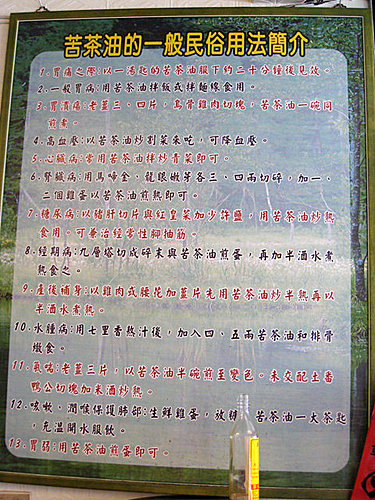 苦茶油的一般民俗用法簡介
1.胃痛之際:以一湯匙的苦茶油服下約二十分鐘後見效。
2.一般胃病:用苦茶油拌飯或拌麵線食用。
3.胃潰瘍:老薑三、四片,烏骨雞肉切塊,苦茶油一碗同
煎煮。
4.高血壓:以苦茶油炒割菜來吃,可降血壓。
5.心臟病:常用苦茶油拌炒青菜即可。
6.腎臟病:用馬啼金,龍眼嫩芽各三、四兩切碎,加一、
二個雞蛋以苦茶油煎熟即可。
7.糖尿病:以豬肝切片與紅皇菜加少許鹽,用苦茶油炒熟
食用。可兼治經常性腳抽筋。
8.經期病:九層塔切成碎末與苦茶油煎蛋,再加半酒水煮
熟食之。
9.產後補身:以雞肉或腰花加薑片先用苦茶油炒半熟再以
半酒水煮熟。
10.水腫病:用七里香熬汁後,加入四、五兩苦茶油和排骨
燉食。
11.氣喘:老薑三片,以苦茶油半碗煎至變色。未交配土番
鴨公切塊加米酒炒熟。
12.咳嗽、潤喉保護肺部:生鮮雞蛋,放糖 苦茶油一大茶匙
,充溫開水服飲。
13.胃弱:用苦茶油煎蛋即可。